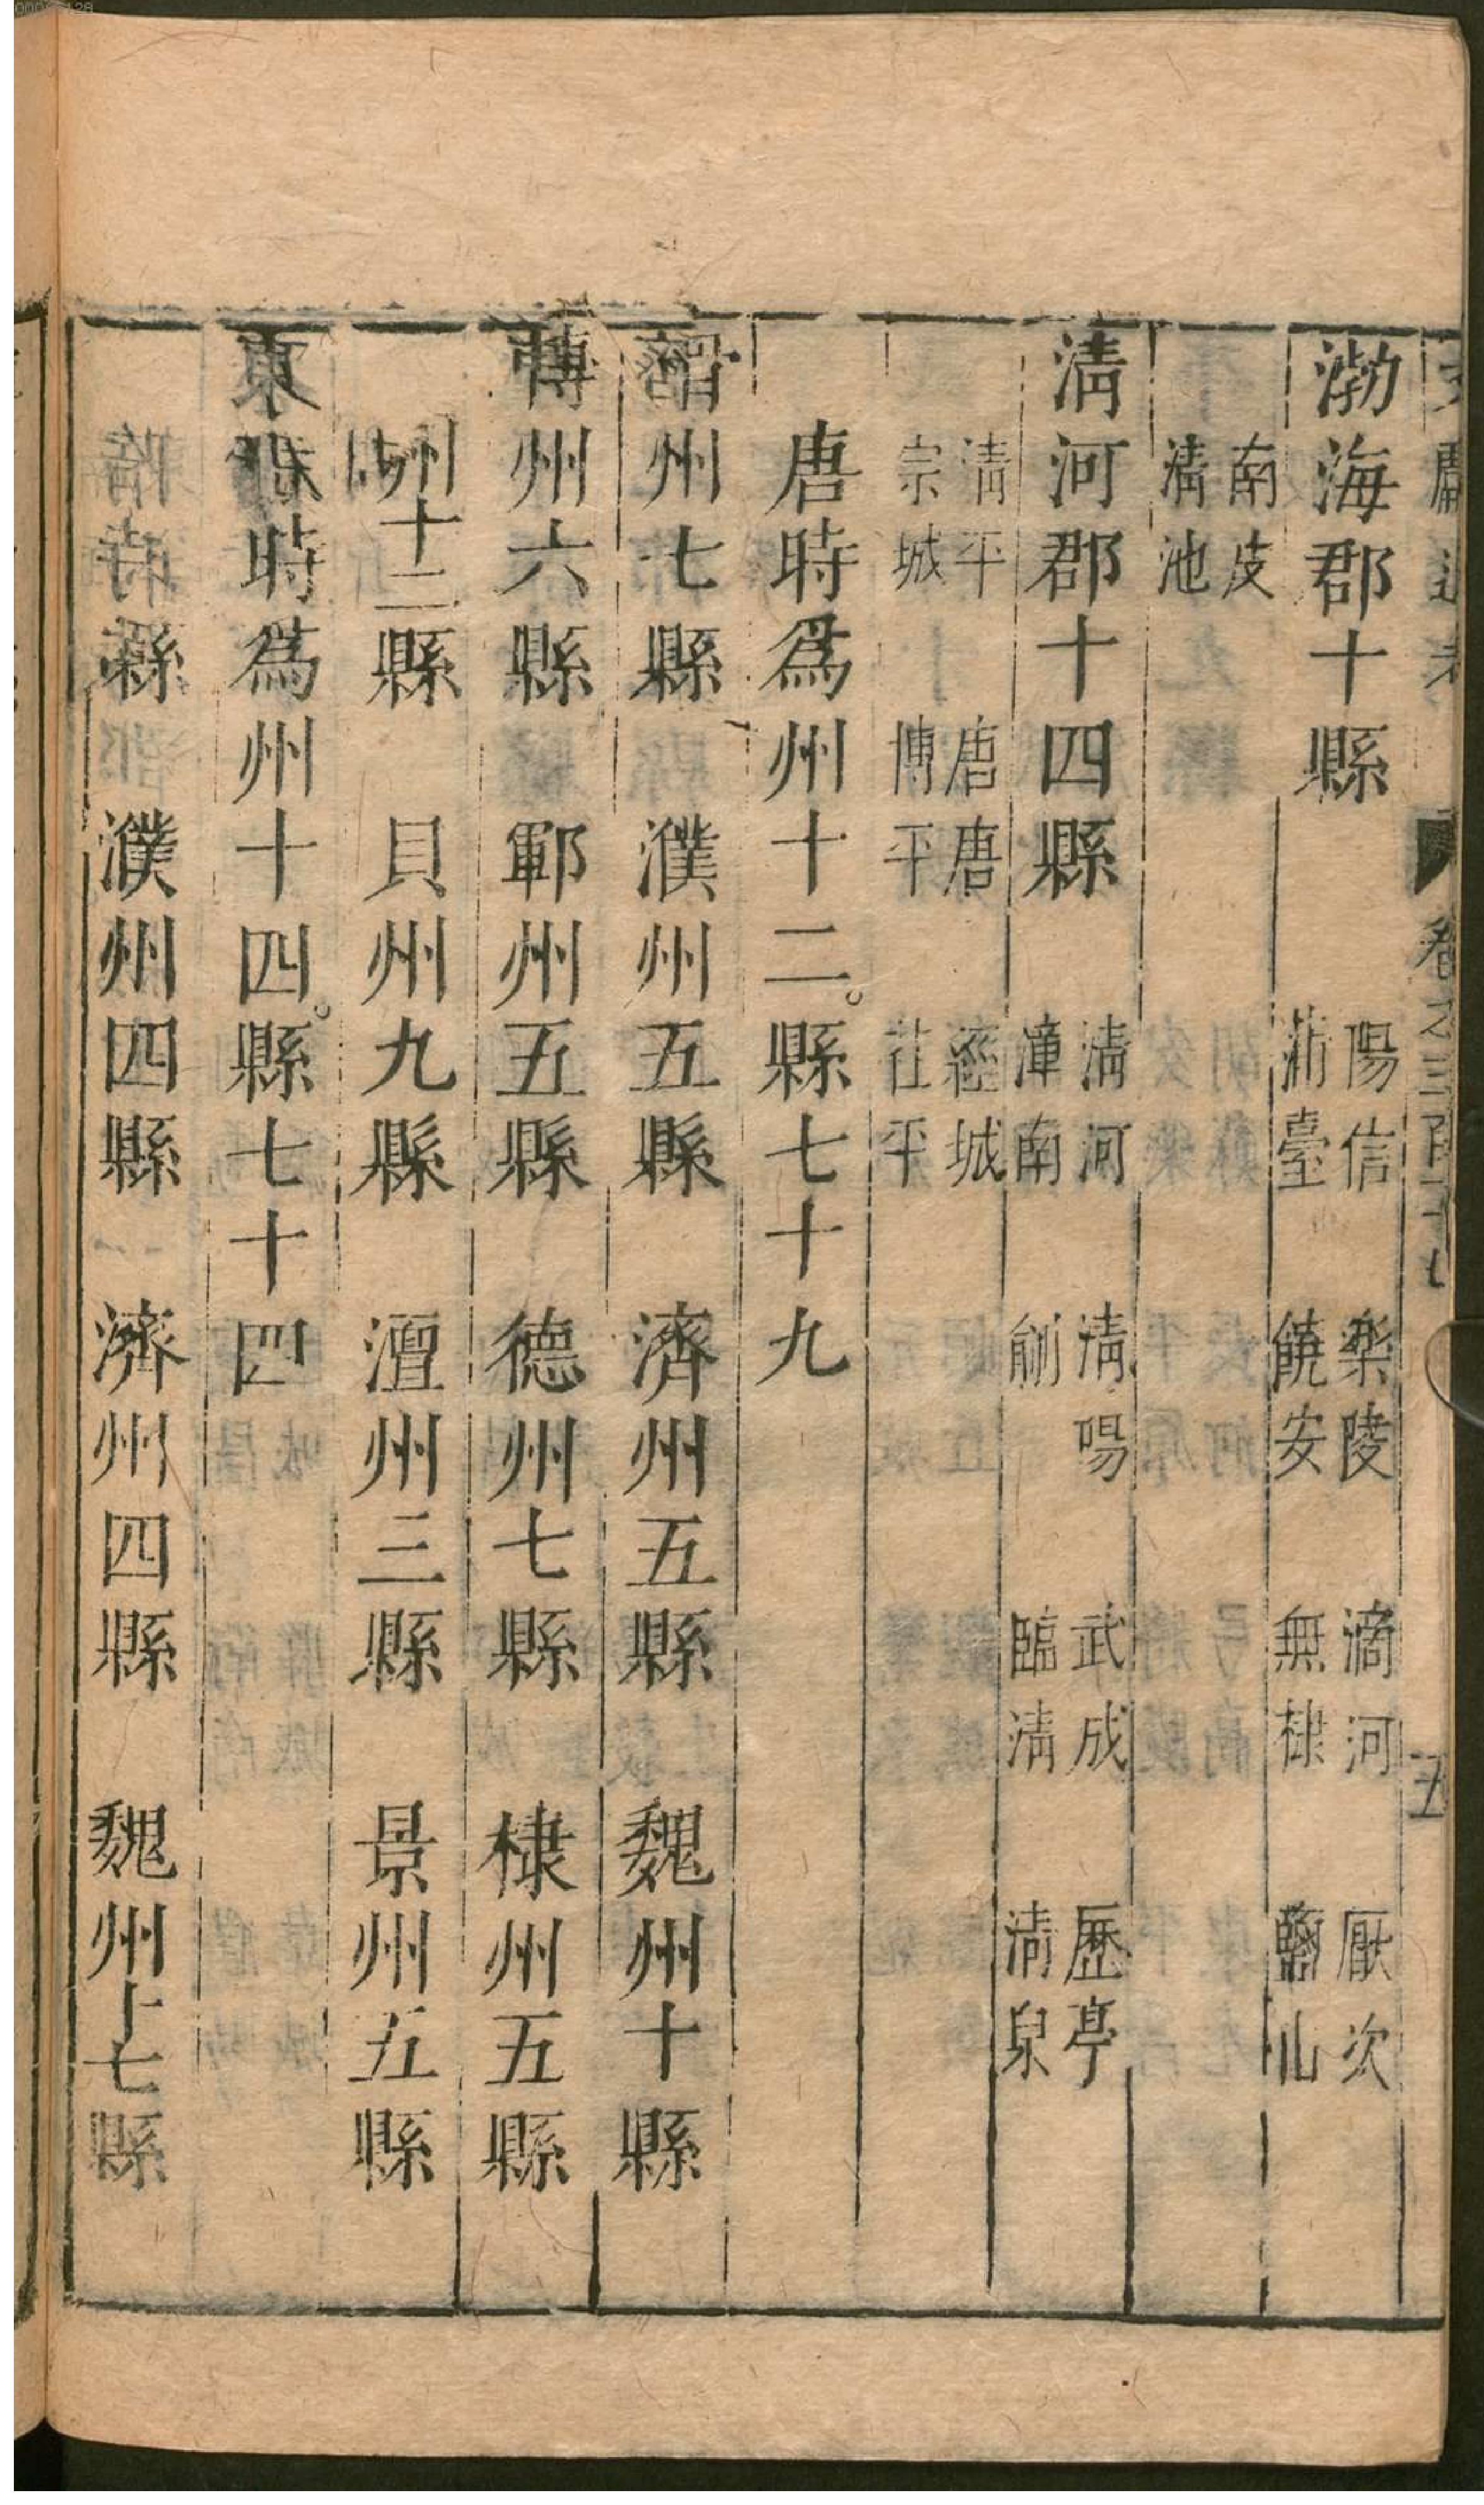 文獻通考 卷之三百十七 五
渤海郡十縣
陽信 樂陵 滴河 厭次
蒲臺 饒安 無棣 鹽山
南皮
清池
清河郡十四縣
清河 清陽 武成 歷亭
漳南 鄃 臨清 清泉
清平 唐唐 經城
宗城 博平 茌平
唐時爲州十二。縣七十九
州七縣 濮州五縣 濟州五縣 魏州十縣
博州六縣 鄆州五縣 德州七縣 棣州五縣
州十二縣 貝州九縣 澶州三縣 景州五縣
東時爲州十四。縣七十四
縣 濮州四縣 濟州四縣 魏州十七縣